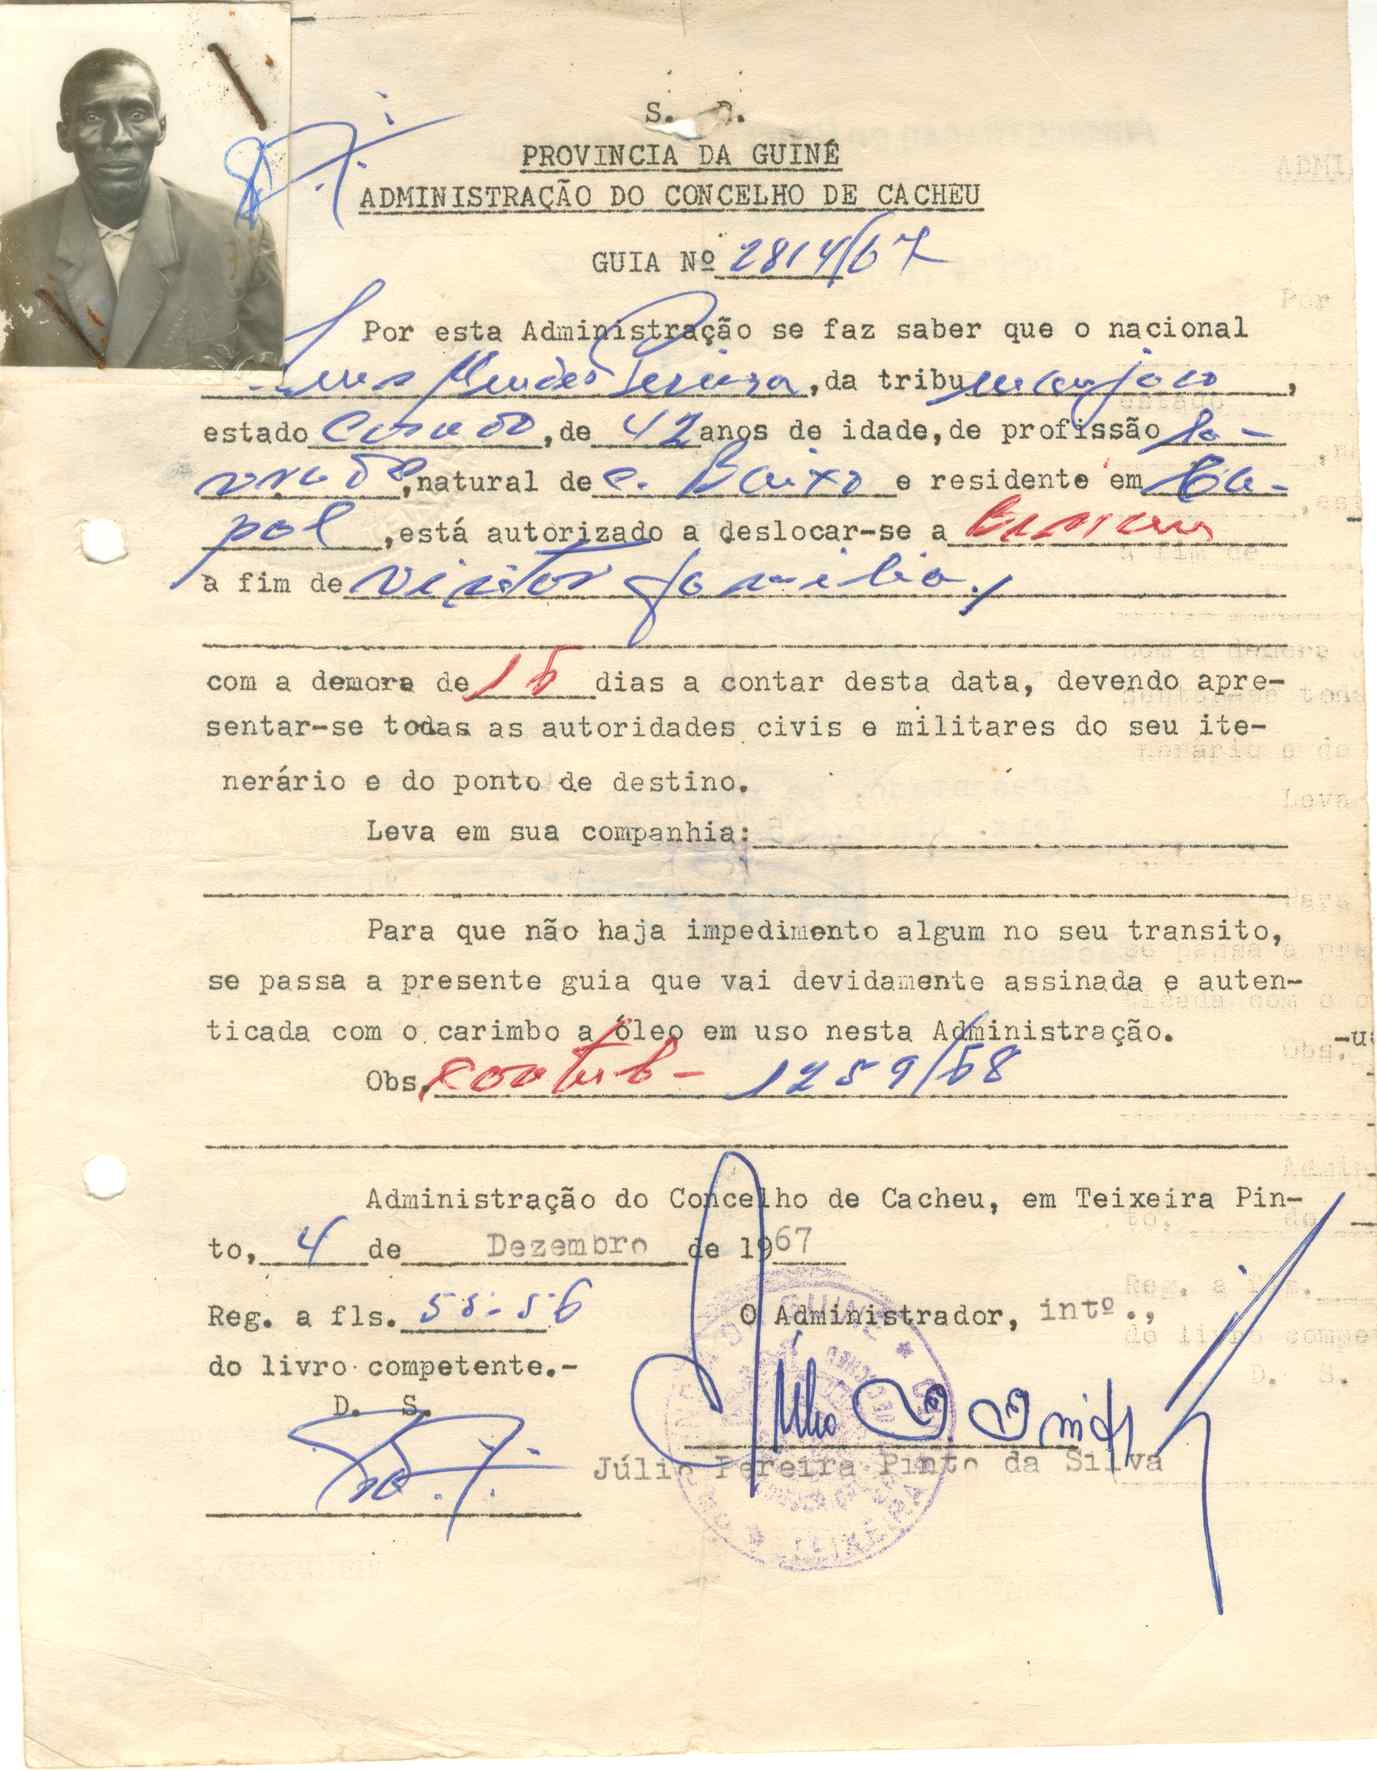 S. R.
PROVINCIA DA GUINÉ
ADMINISTRAÇÃO DO CONCELHO DE CACHEU
GUIA Nº 2814/67
Por esta Administração se faz saber que o nacional
Mendes Pereira, da tribu manjaco,
estado casado, de 42 anos de idade, de profissão la-
vrador, natural de C. Baixo e residente em Ca-
pol, está autorizado a deslocar-se a Bissau
a fim de visitar familia,
com a demora de 15 dias a contar desta data, devendo apre-
sentar-se todas as autoridades civis e militares do seu ite-
nerário e do ponto de destino.
Leva em sua companhia:
Para que não haja impedimento algum no seu transito,
se passa a presente guia que vai devidamente assinada e auten-
ticada com o carimbo a óleo em uso nesta Administração.
Obs. 1259/68
Administração do Concelho de Cacheu, em Teixeira Pin-
to, 4 de Dezembro de 1967
Reg. a fls. 55-56 O Administrador, intº.,
do livro competente.-
D. S.
Júlio Pereira Pinto da Silva